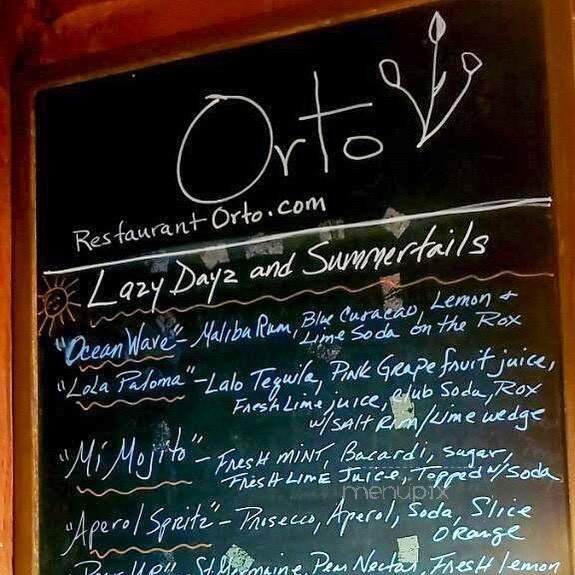 Orto
Restaurant Orto.com
Lazy Dayz and Summertails
"Ocean Wave" - Maliba Rum, Blue Curacao, Lemon &
Lime Soda on the Rox
"Lola Paloma" - Lalo Tequila, Pink Grapefruit juice,
Fresh Lime juice, club Soda, Rox
w/ salt Rim/Lime wedge
"Mi Mojito" - Fresh mint, Bacardi, sugar,
Fresh Lime Juice, Topped w/ Soda
menupix
"Aperol Spritz" - Prosecco, Aperol, Soda, Slice
Orange
St. Germaine, Pear Nectar, Fresh lemon